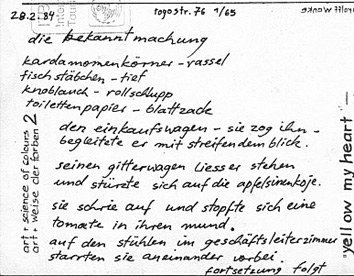 28.2.84
togostr. 76 1/65
die bekanntmachung
kardamomenkörner - rassel
fischstäbchen - tief
knoblauch - rollschlupp
toilettenpapier - blattzack
den einkaufswagen - sie zog ihn -
begleitete er mit streifendem blick.
seinen gitterwagen liess er stehen
und stürzte sich auf die apfelsinenkoje.
sie schrie auf und stopfte sich eine
tomate in ihren mund.
auf den stühlen im geschäftsleiterzimmer
starrten sie aneinander vorbei.
fortsetzung folgt
art + science of colours 2
art + weise der farben
"yellow my heart -